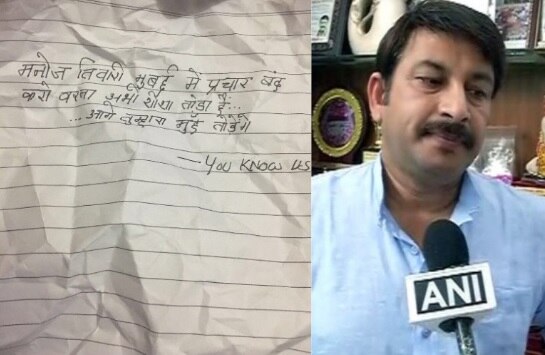 मनोज तिवारी मुंबई में प्रचार बंद
करो वरना अभी शीशा तोडा है...
...आगे तुम्हारा मुंह तोड़ेंगे
— YOU KNOW US
ANI